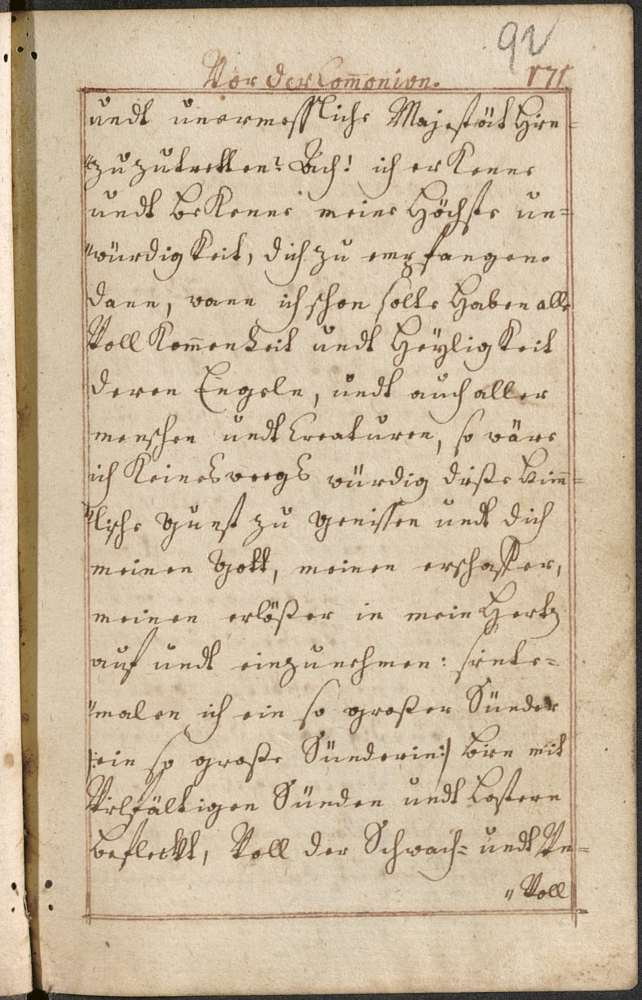 92
Vor der Com̄onion. 171
undt unermessliche Majestät hin=
"zuzutretten? Ach! ich erKenne
undt beKenne meine Höchste un=
"würdigKeit, dich zu empfangen.
dann, wann ich schon solte Haben alle
VollKom̄enheit undt HeyligKeit
deren Engeln, undt auch aller
menschen undt Creaturen, so wäre
ich Keineswegs würdig diße him̄=
"lische gunst zu genissen undt dich
meinen gott, meinen erschaffer,
meinen erlößer in mein Hertz
auf undt einzunehmen: sinte=
"malen ich ein so großer Sünder
/:ein so große Sünderin:/ bin mit
Vilfältigen Sünden undt Lastern
befleckt, Voll der Schwach= undt Un=
"Voll